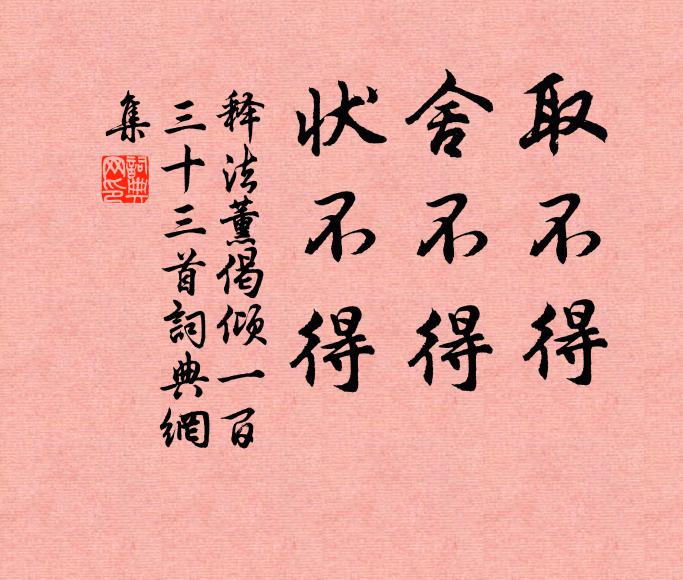 取不得
舍不得
状不得
释法薰偈倾一百
三十三首詞典網
集
詞典
网印